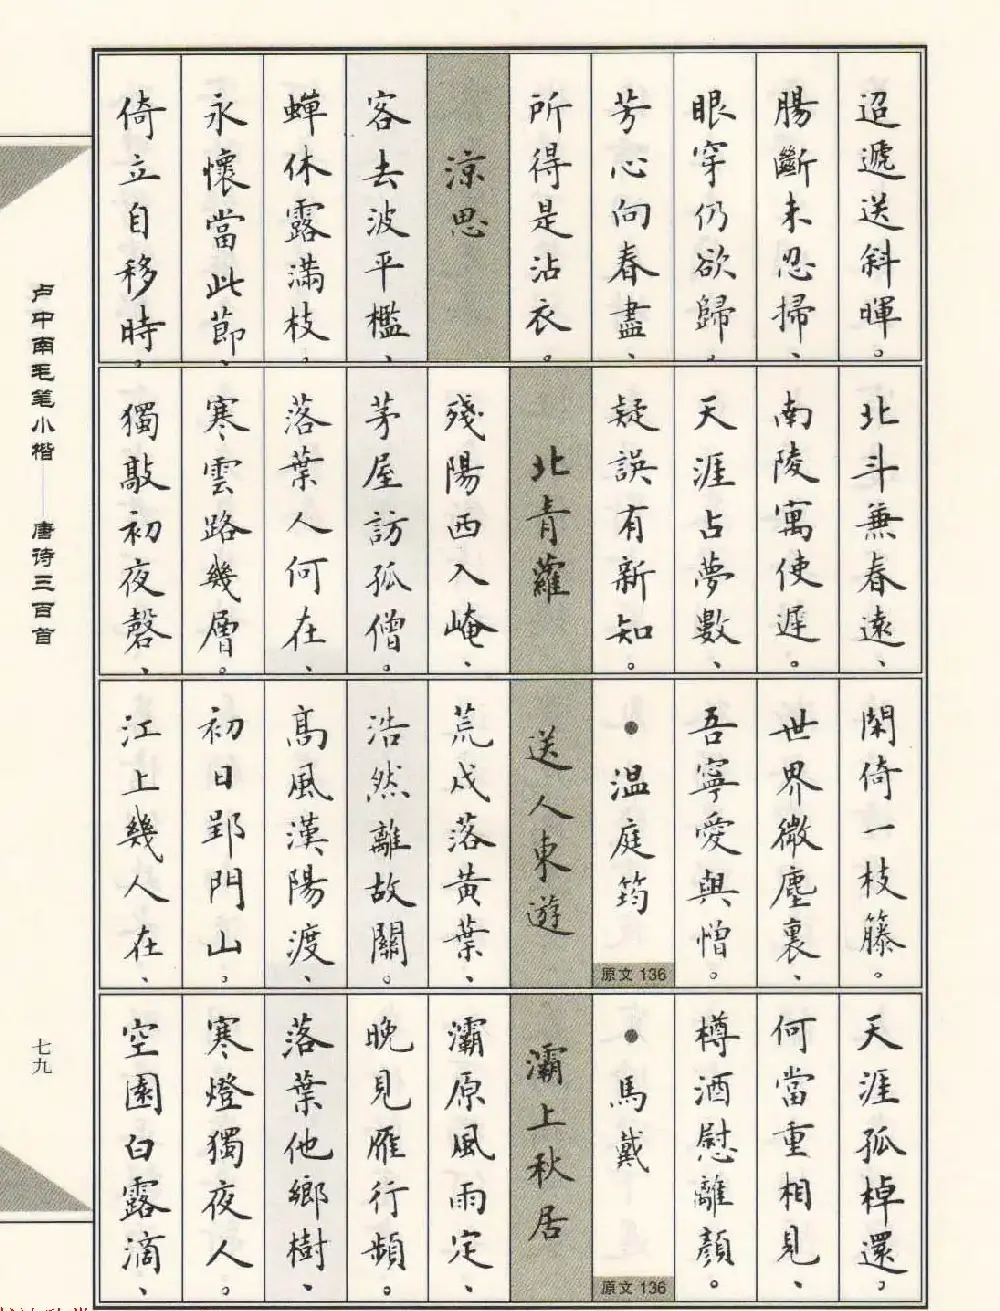 迢遞送斜暉。
腸斷未忍掃、
眼穿仍欲歸。
芳心向春盡、
所得是沾衣。
涼思
客去波平檻、
蟬休露滿枝。
永懷當此節、
倚立自移時。
北斗兼春遠、
南陵寓使遲。
天涯占夢數、
疑誤有新知。
北青蘿
殘陽西入崦、
茅屋訪孤僧。
落葉人何在、
寒雲路幾層。
獨敲初夜磬、
閑倚一枝籐。
世界微塵裏、
吾寧愛與憎。
●溫庭筠
原文 136
送人東遊
荒戍落黃葉、
浩然離故關。
高風漢陽渡、
初日郢門山。
江上幾人在、
天涯孤棹還。
何當重相見、
樽酒慰離顏。
●馬戴
原文 136
灞上秋居
灞原風雨定、
晚見雁行頻。
落葉他鄉樹、
寒燈獨夜人。
空園白露滴、
卢中南毛笔小楷——唐诗三百首
七九